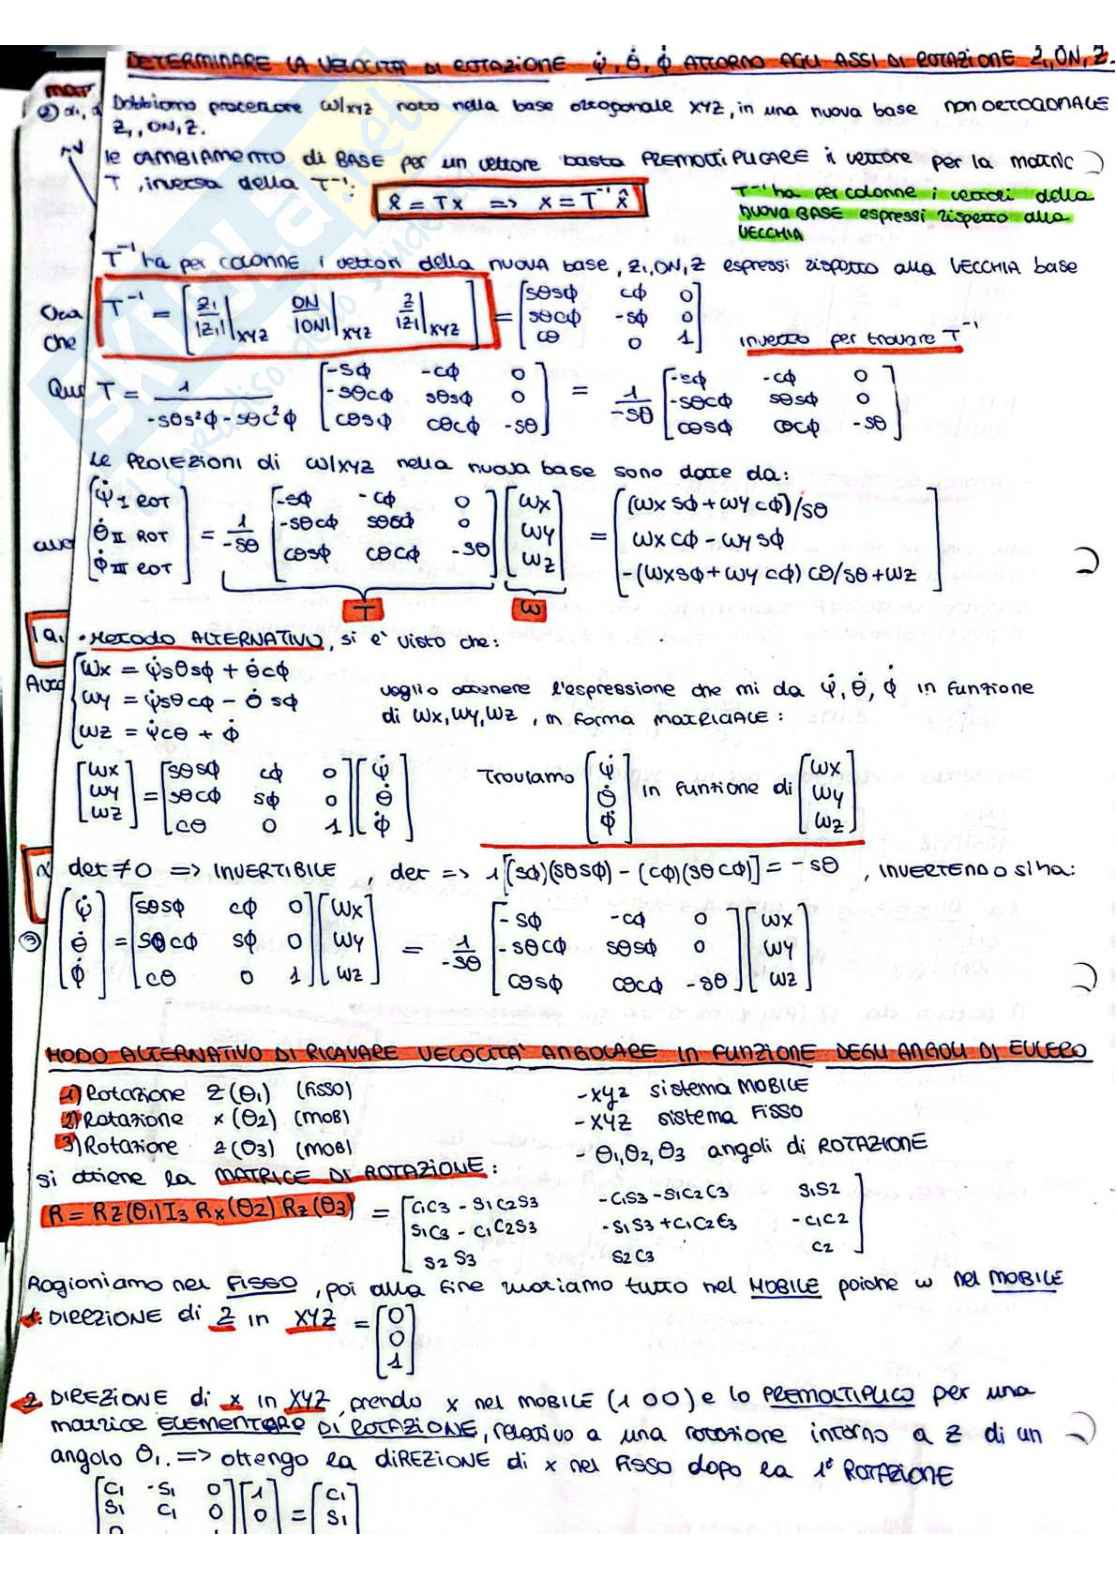 DETERMINARE LA VELOCITA' DI ROTAZIONE ψ̇, θ̇, φ̇ ATTORNO AGLI ASSI DI ROTAZIONE Z₁, ON, Z.
Dobbiamo proiettare ω|xyz noto nella base ortogonale XYZ, in una nuova base NON ORTOGONALE
Z₁, ON, Z.
le CAMBIAMENTO di BASE per un vettore basta PREMOLTIPLICARE il vettore per la matric
T, inversa della T⁻¹: x̂ = Tx => x = T⁻¹x̂
T⁻¹ ha per colonne i vettori della
nuova BASE espressi rispetto alla
VECCHIA
T⁻¹ ha per colonne i vettori della nuova base, Z₁, ON, Z espressi rispetto alla VECCHIA base
T⁻¹ = [Z₁/|Z₁| |XYZ ON/|ON| |XYZ Z/|Z| |XYZ] = [sθsφ cφ 0; sθcφ -sφ 0; cθ 0 1] inverto per trovare T⁻¹
che
T = 1/(-sθs²φ-sθc²φ) [-sφ -cφ 0; -sθcφ sθsφ 0; cθsφ cθcφ -sθ] = 1/-sθ [-sφ -cφ 0; -sθcφ sθsφ 0; cθsφ cθcφ -sθ]
Le PROIEZIONI di ω|xyz nella nuova base sono date da:
[ψ̇ I ROT; θ̇ II ROT; φ̇ III ROT] = 1/-sθ [-sφ -cφ 0; -sθcφ sθsφ 0; cθsφ cθcφ -sθ] [ωx; ωy; ωz] = [(ωx sφ + ωy cφ)/sθ; ωx cφ - ωy sφ; -(ωx sφ + ωy cφ) cθ/sθ + ωz]
T ω
• METODO ALTERNATIVO, si e' visto che:
ωx = ψ̇sθsφ + θ̇cφ
ωy = ψ̇sθcφ - θ̇ sφ
ωz = ψ̇cθ + φ̇
voglio ottenere l'espressione che mi da ψ̇, θ̇, φ̇ in funzione
di ωx, ωy, ωz, in forma MATRICIALE:
[ωx; ωy; ωz] = [sθsφ cφ 0; sθcφ sφ 0; cθ 0 1] [ψ̇; θ̇; φ̇] Troviamo [ψ̇; θ̇; φ̇] in funzione di [ωx; ωy; ωz]
det ≠ 0 => INVERTIBILE, det => 1[(sφ)(sθsφ) - (cφ)(sθcφ)] = -sθ, INVERTENDO si ha:
③ [ψ̇; θ̇; φ̇] = [sθsφ cφ 0; sθcφ sφ 0; cθ 0 1] [ωx; ωy; ωz] = 1/-sθ [-sφ -cφ 0; -sθcφ sθsφ 0; cθsφ cθcφ -sθ] [ωx; ωy; ωz]
MODO ALTERNATIVO DI RICAVARE VELOCITA' ANGOLARE IN FUNZIONE DEGLI ANGOLI DI EULERO
1) Rotazione Z(θ₁) (fisso)
2) Rotazione x(θ2) (mob)
3) Rotazione z(θ3) (mob)
- xyz sistema MOBILE
- XYZ sistema FISSO
- θ₁, θ2, θ3 angoli di ROTAZIONE
si ottiene la MATRICE DI ROTAZIONE:
R = Rz(θ₁) I₃ Rx(θ2) Rz(θ3) = [C₁C3 - S₁C2S3 -C₁S3 - S₁C2C3 S₁S2; S₁C3 - C₁C2S3 -S₁S3 + C₁C2C3 -C₁C2; S2S3 S2C3 C2]
Ragioniamo nel FISSO, poi alla fine ruotiamo tutto nel MOBILE poiche ω nel MOBILE
1. DIREZIONE di Z in XYZ = [0; 0; 1]
2. DIREZIONE di x in XYZ, prendo x nel MOBILE (1 0 0) e lo PREMOLTIPLICO per una
matrice ELEMENTARE DI ROTAZIONE, relativo a una rotazione intorno a Z di un
angolo θ₁. => ottengo la DIREZIONE di x nel FISSO dopo la 1ª ROTAZIONE
[C₁ -S₁ 0; S₁ C₁ 0] [1; 0] = [C₁; S₁]